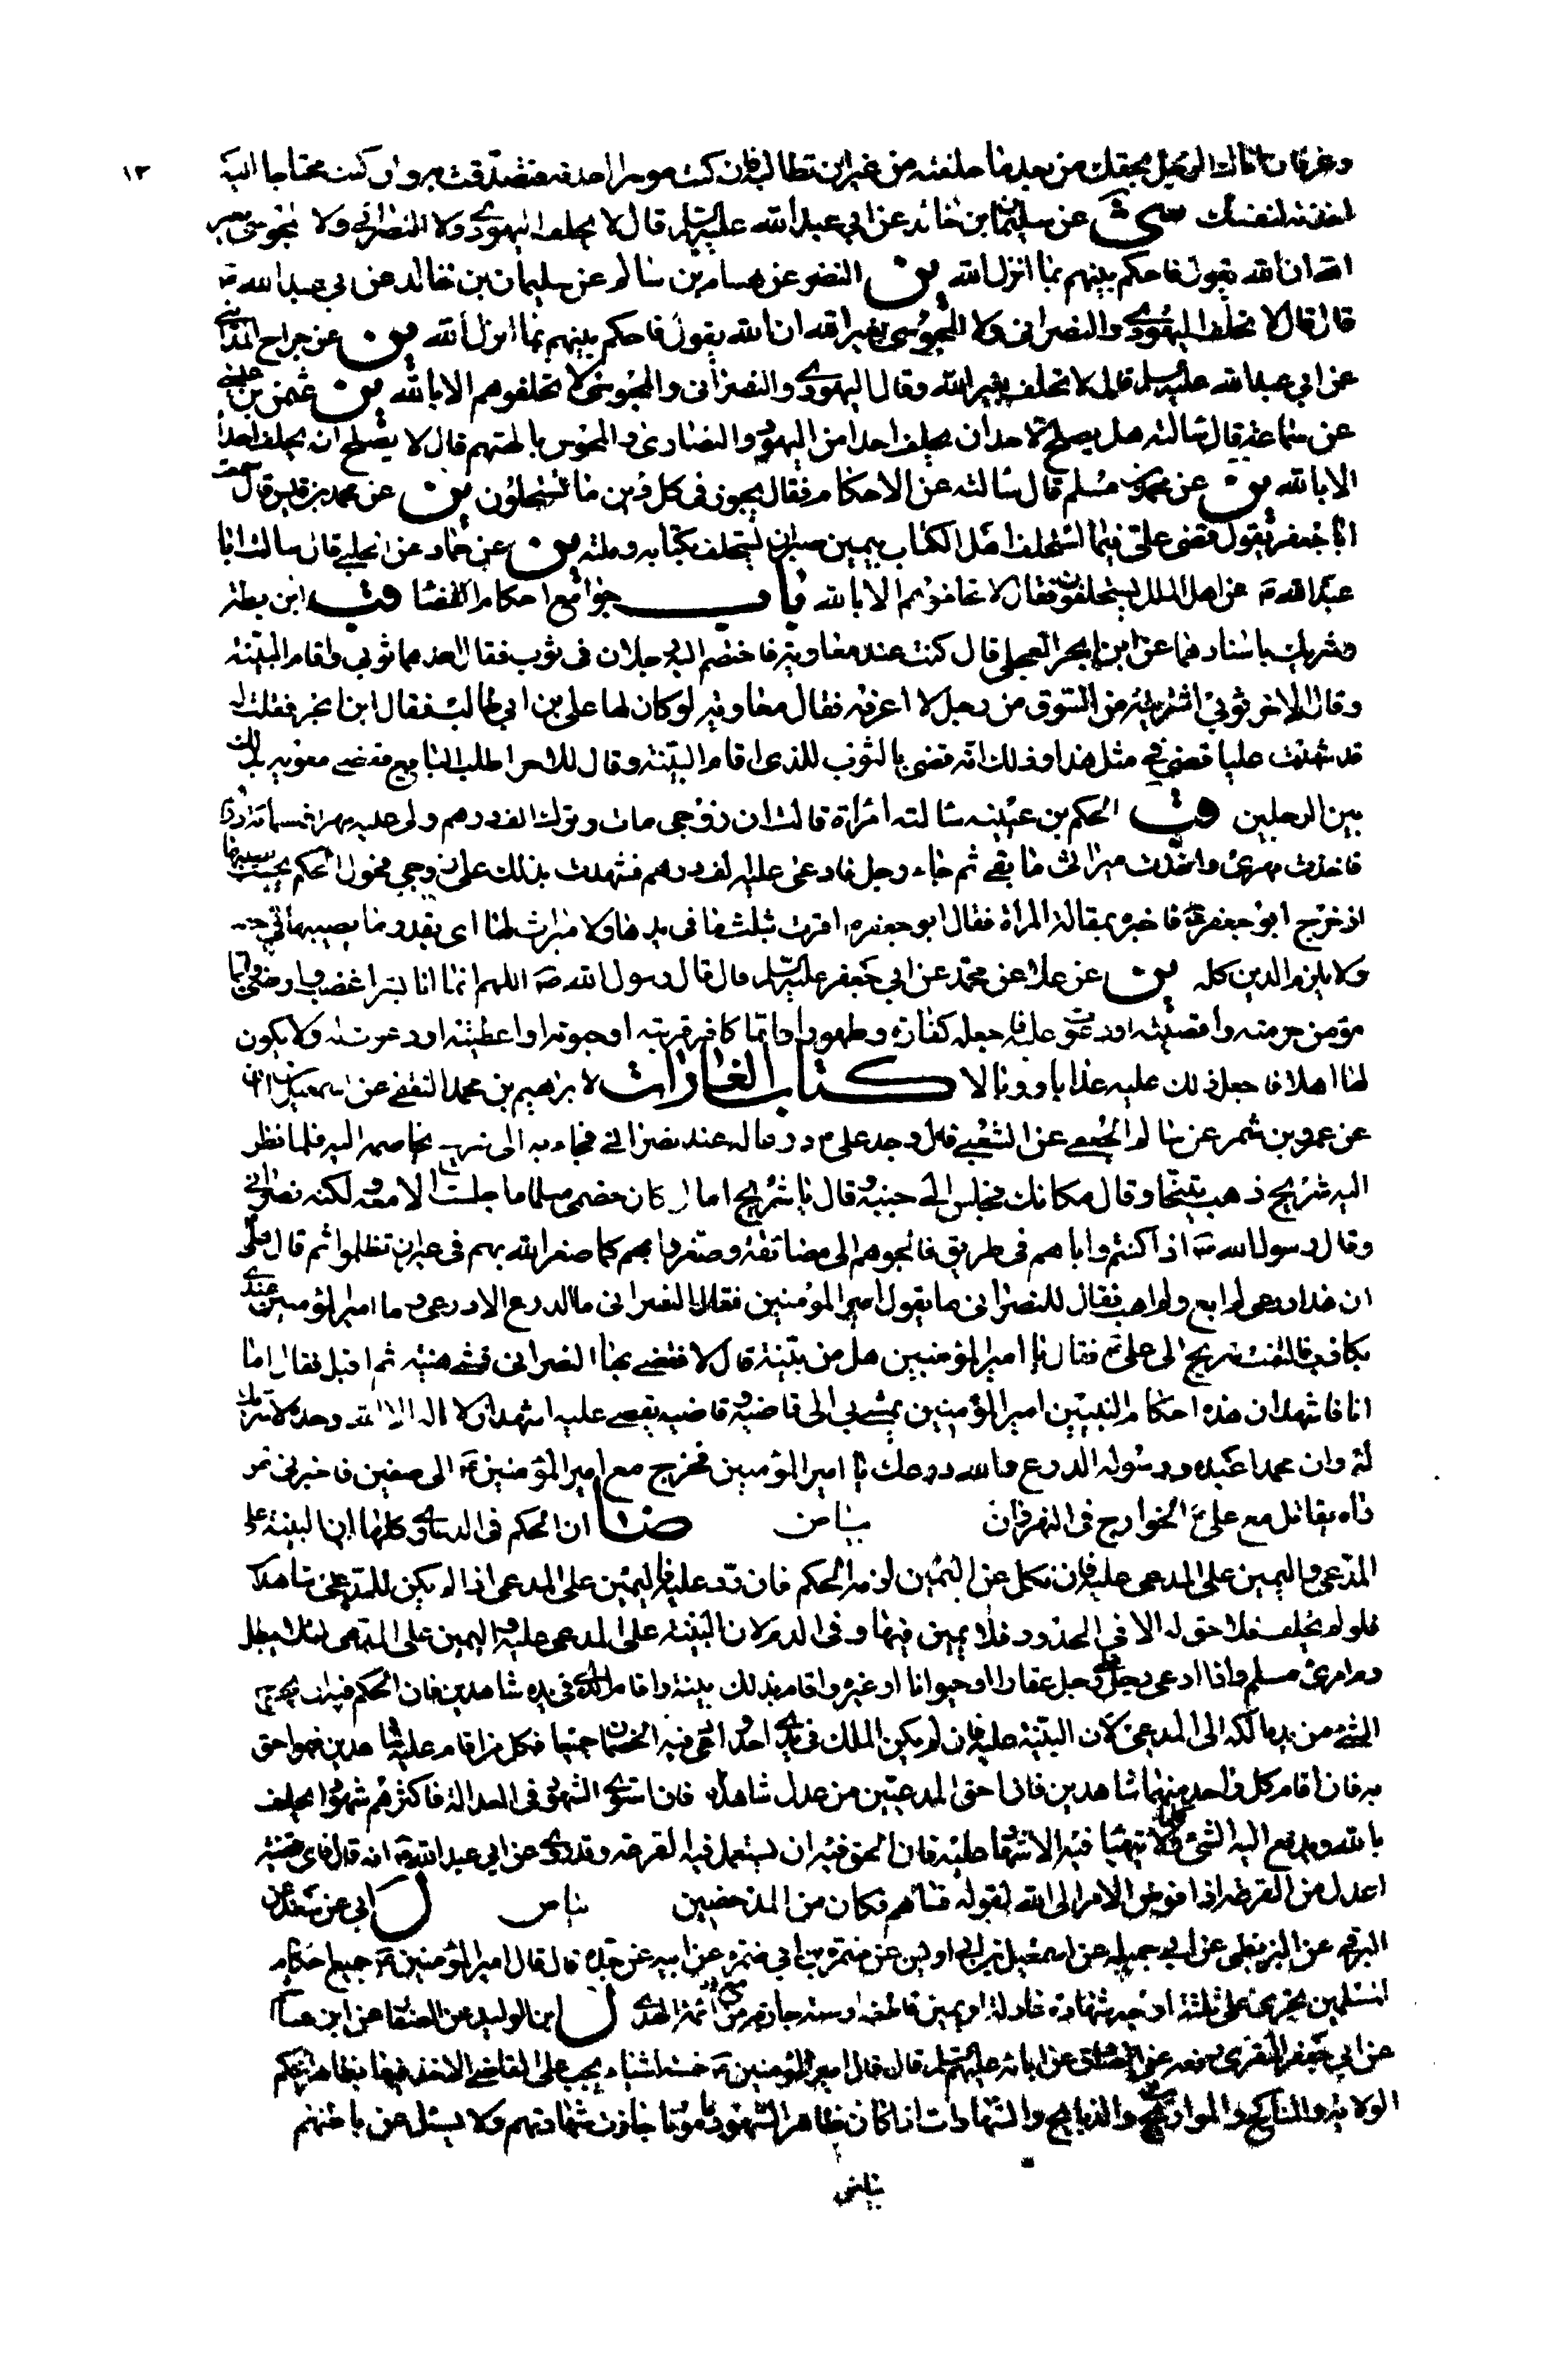 ١٣
وغرفان اتاك الرجل بحقك من بعد ما حلفته من غير ان تطالبه فان كنت موسرا اخذته فتصدقت به وان كنت محتاجا اليه
اخذته لنفسك شى عن سليمان بن خالد عن ابي عبد الله عليه السلم قال لا يحلف اليهودي ولا النصراني ولا المجوسي بغير
الله ان الله يقول فاحكم بينهم بما انزل الله ين النضر عن هشام بن سالم عن سليمان بن خالد عن ابي عبد الله ع
قال قال لا تحلف اليهودي والنصراني ولا المجوسي بغير الله ان الله يقول فاحكم بينهم بما انزل الله ين عن جراح المدايني
عن ابي عبد الله عليه السلم قال لا تحلف بغير الله وقال اليهودي والنصراني والمجوسي لا تحلفوهم الا بالله ين عثمن بن عيسى
عن سماعة قال سالته هل يصلح لاحد ان يحلف احدا من اليهود والنصارى والمجوس بالهتهم قال لا يصلح ان يحلف احدا
الا بالله ين عن محمد بن مسلم قال سالته عن الاحكام فقال يجوز في كل دين ما يستحلون ين عن محمد بن قيس قال سمعت
ابا جعفر يقول قضى علي فيما استحلف اهل الكتاب بيمين صبر ان يستحلف بكتابه وملته ين عن حماد عن الحلبي قال سالت ابا
عبد الله ع عن اهل الملل يستحلفون فقال لا تحلفوهم الا بالله باب جوامع احكام القضا قب ابن بطة
وشريك باسنادهما عن ابن ابجر العجلي قال كنت عند معاوية فاختصم اليه رجلان في ثوب فقال احدهما ثوبي واقام البينة
وقال الاخر ثوبي اشتريته من السوق من رجل لا اعرفه فقال معاوية لو كان لها علي بن ابي طالب فقال ابن ابجر فقلت له
قد شهدت عليا قضى في مثل هذا وذلك انه قضى بالثوب للذي اقام البينة وقال للاخر اطلب البايع فقضى معوية بذلك
بين الرجلين قب الحكم بن عيينه سالته امراة قالت ان زوجي مات وترك الف درهم ولي عليه مهر خمسمائة درهم
فاخذت مهري واخذت ميراثي ما بقي ثم جاء رجل فادعى عليه الف درهم فشهدت بذلك على زوجي فحول الحكم يحسب نصيبها
اذ خرج ابو جعفر ع فاخبره بمقالة المراة فقال ابو جعفر ع اقرت بثلث ما في يدها ولا ميراث لها اي بقدر ما يصيبها في حصته
ولا يلزم الدين كله ين عن علا عن محمد عن ابي جعفر عليه السلم قال قال رسول الله ص اللهم انما انا بشر اغضب وارضى وايما
مؤمن حرمته واقصيته او دعوت عليه فاجعله كفارة وطهورا وايما كافر قربته او حبوته او اعطيته او دعوت له ولا يكون
لها اهلا فاجعل ذلك عليه عذابا ووبالا كتاب الغارات لابراهيم بن محمد الثقفي عن اسمعيل بن ابان
عن عمرو بن شمر عن سالم الجعفي عن الشعبي قال وجد علي ع درعا له عند نصراني فجاء به الى شريح يخاصمه اليه فلما نظر
اليه شريح ذهب يتنحا وقال مكانك فجلس الى جنبه وقال يا شريح اما لو كان خصمي مسلما ما جلست الا معه ولكنه نصراني
وقال رسول الله ص اذا كنتم واياهم في طريق فالجوهم الى مضائقه وصغروا بهم كما صغر الله بهم في غير ان تظلموا ثم قال علي
ان هذا درعي لم ابع ولم اهب فقال للنصراني ما يقول امير المؤمنين فقال النصراني ما الدرع الا درعي وما امير المؤمنين عندي
بكاذب فالتفت شريح الى علي ع فقال يا امير المؤمنين هل من بينة قال لا فقضى بها للنصراني فمشى هنيئة ثم اقبل فقال اما
انا فاشهد ان هذه احكام النبيين امير المؤمنين يمشي بي الى قاضيه وقاضيه يقضي عليه اشهد ان لا اله الا الله وحده لا شريك
له وان محمدا عبده ورسوله الدرع والله درعك يا امير المؤمنين فخرج مع امير المؤمنين ع الى صفين فاخبرني من
راه يقاتل مع علي ع الخوارج في النهروان بياض ضا ان الحكم في الدعاوي كلها ان البينة على
المدعي واليمين على المدعى عليه فان نكل عن اليمين لزمه الحكم فان رد عليه اليمين على المدعي اذا لم يكن للمدعي شاهدا
فلو لم يحلف فلا حق له الا في الحدود فلا يمين فيها وفي الدم لان البينة على المدعى عليه واليمين على المدعي لئلا يبطل
دم امرئ مسلم واذا ادعى رجل على رجل عقارا او حيوانا او غيره واقام بذلك بينة واقام الذي في يده شاهدين فان الحكم فيه ان يخرج
الشيء من يد مالكه الى المدعي لان البينة عليه فان لم يكن الملك في يدي احد وادعى فيه الخصمان جميعا فكل من اقام عليه شاهدين فهو احق
به فان اقام كل واحد منهما شاهدين فان احق المدعيين من عدل شاهداه فان استوى الشهود في العدالة فاكثرهم شهودا يحلف
بالله ويدفع اليه الشيء وكلما لا يتهيا فيه الاشهاد عليه فان الحق فيه ان يستعمل فيه القرعة وقد روي عن ابي عبد الله ع انه قال فاي قضية
اعدل من القرعة اذا فوض الامر الى الله لقوله فساهم فكان من المدحضين بياض ل ابي عن سعد عن
البرقي عن البزنطي عن ابي جميلة عن اسمعيل بن ابي اويس عن ضمرة بن ابي ضمرة عن ابيه عن جده قال قال امير المؤمنين ع جميع احكام
المسلمين يجري على ثلثة اوجه شهادة عادلة او يمين قاطعة او سنة جارية مع ائمة الهدى ل ابن الوليد عن الصفار عن ابن هشام
عن ابي جعفر المقري رفعه عن الصادق عن ابائه عليهم السلم قال قال امير المؤمنين ع خمسة اشياء يجب على القاضي الاخذ فيها بظاهر الحكم
الولاية والمناكح والمواريث والذبايح والشهادات اذا كان ظاهر الشهود مامونا جازت شهادتهم ولا يسئل عن باطنهم
بياض